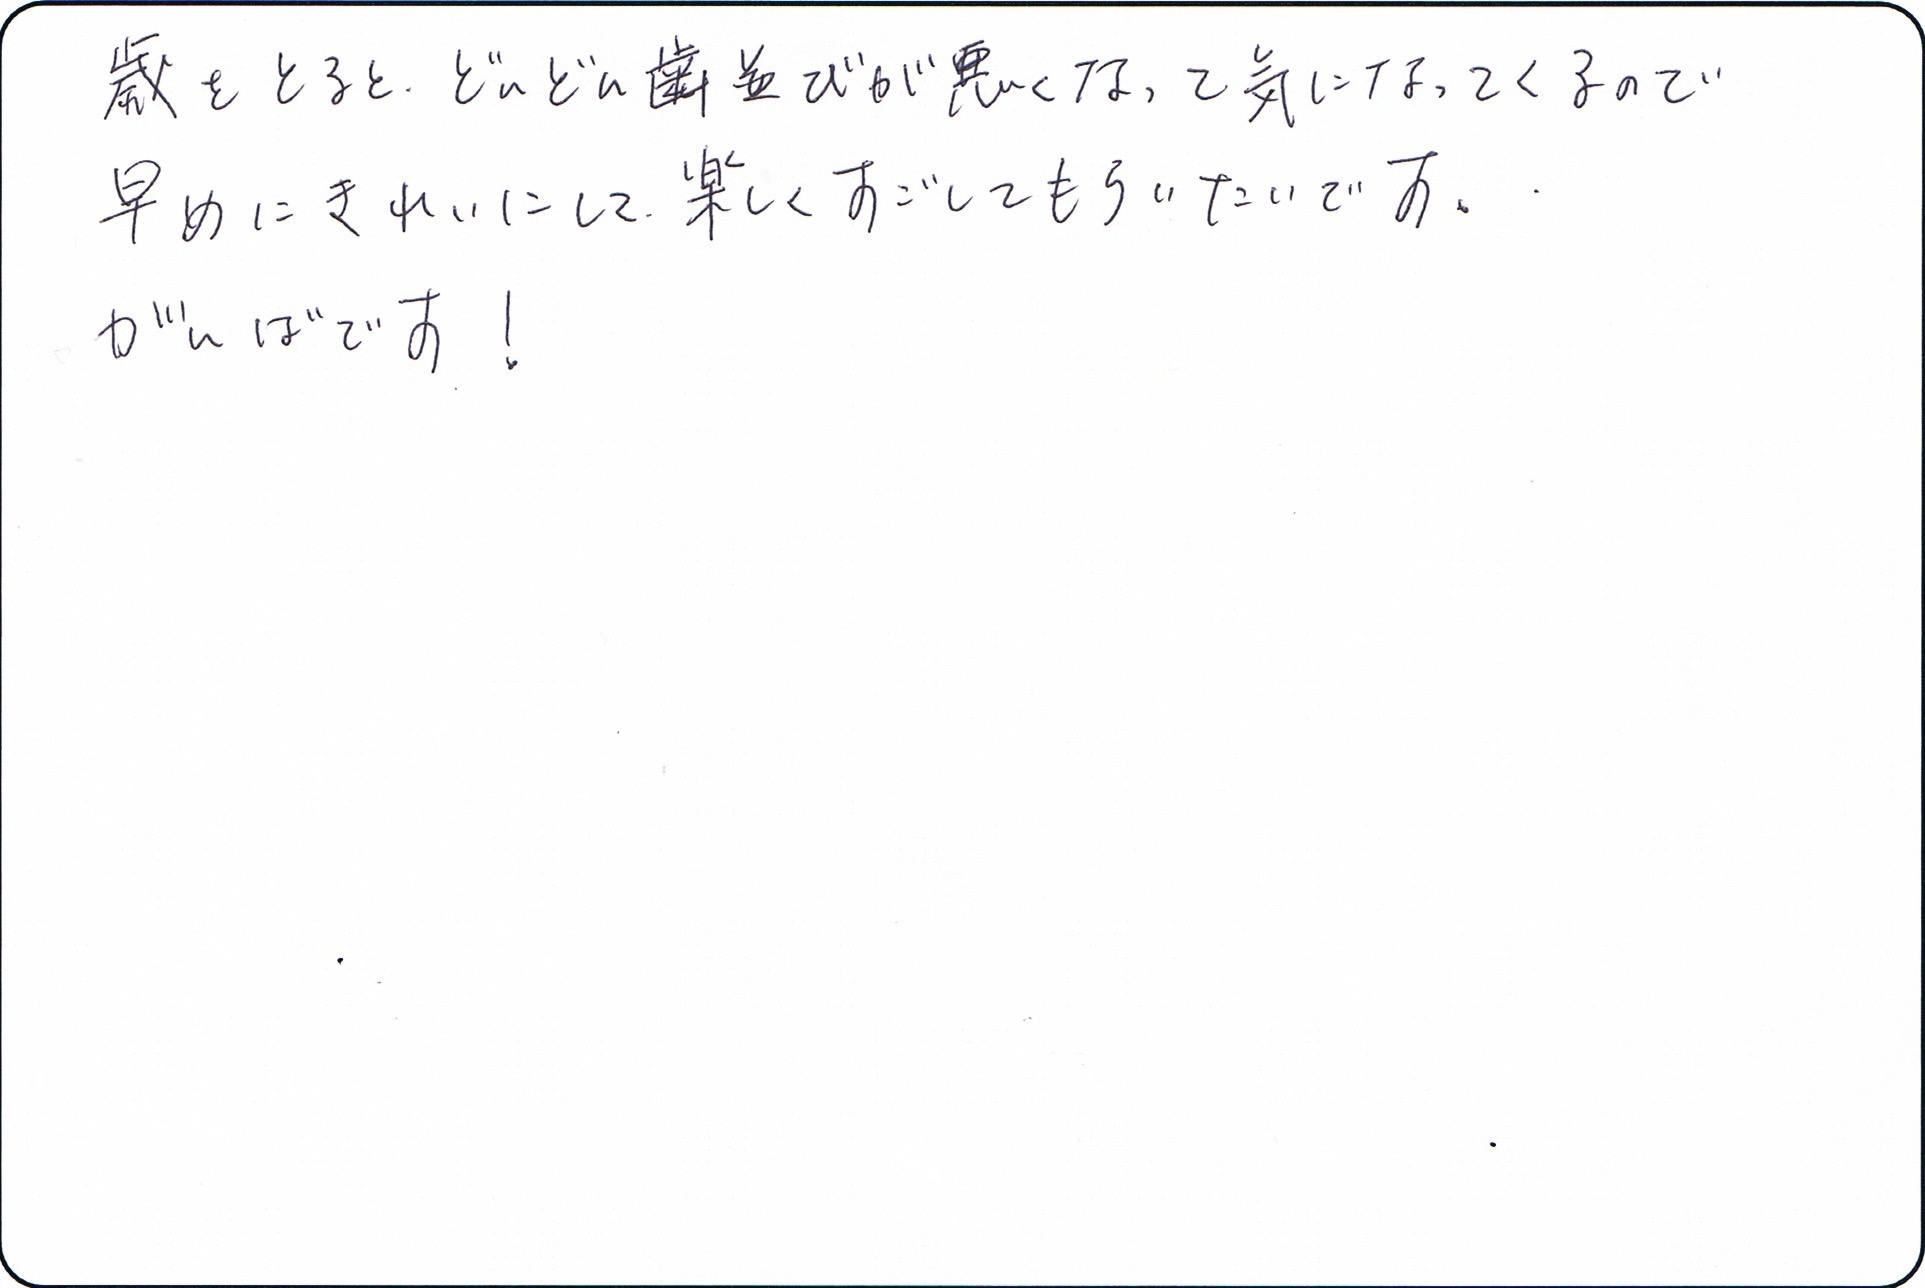 歳をとると、どんどん歯並びが悪くなって気になってくるので
早めにきれいにして、楽しくすごしてもらいたいです。
がんばです!